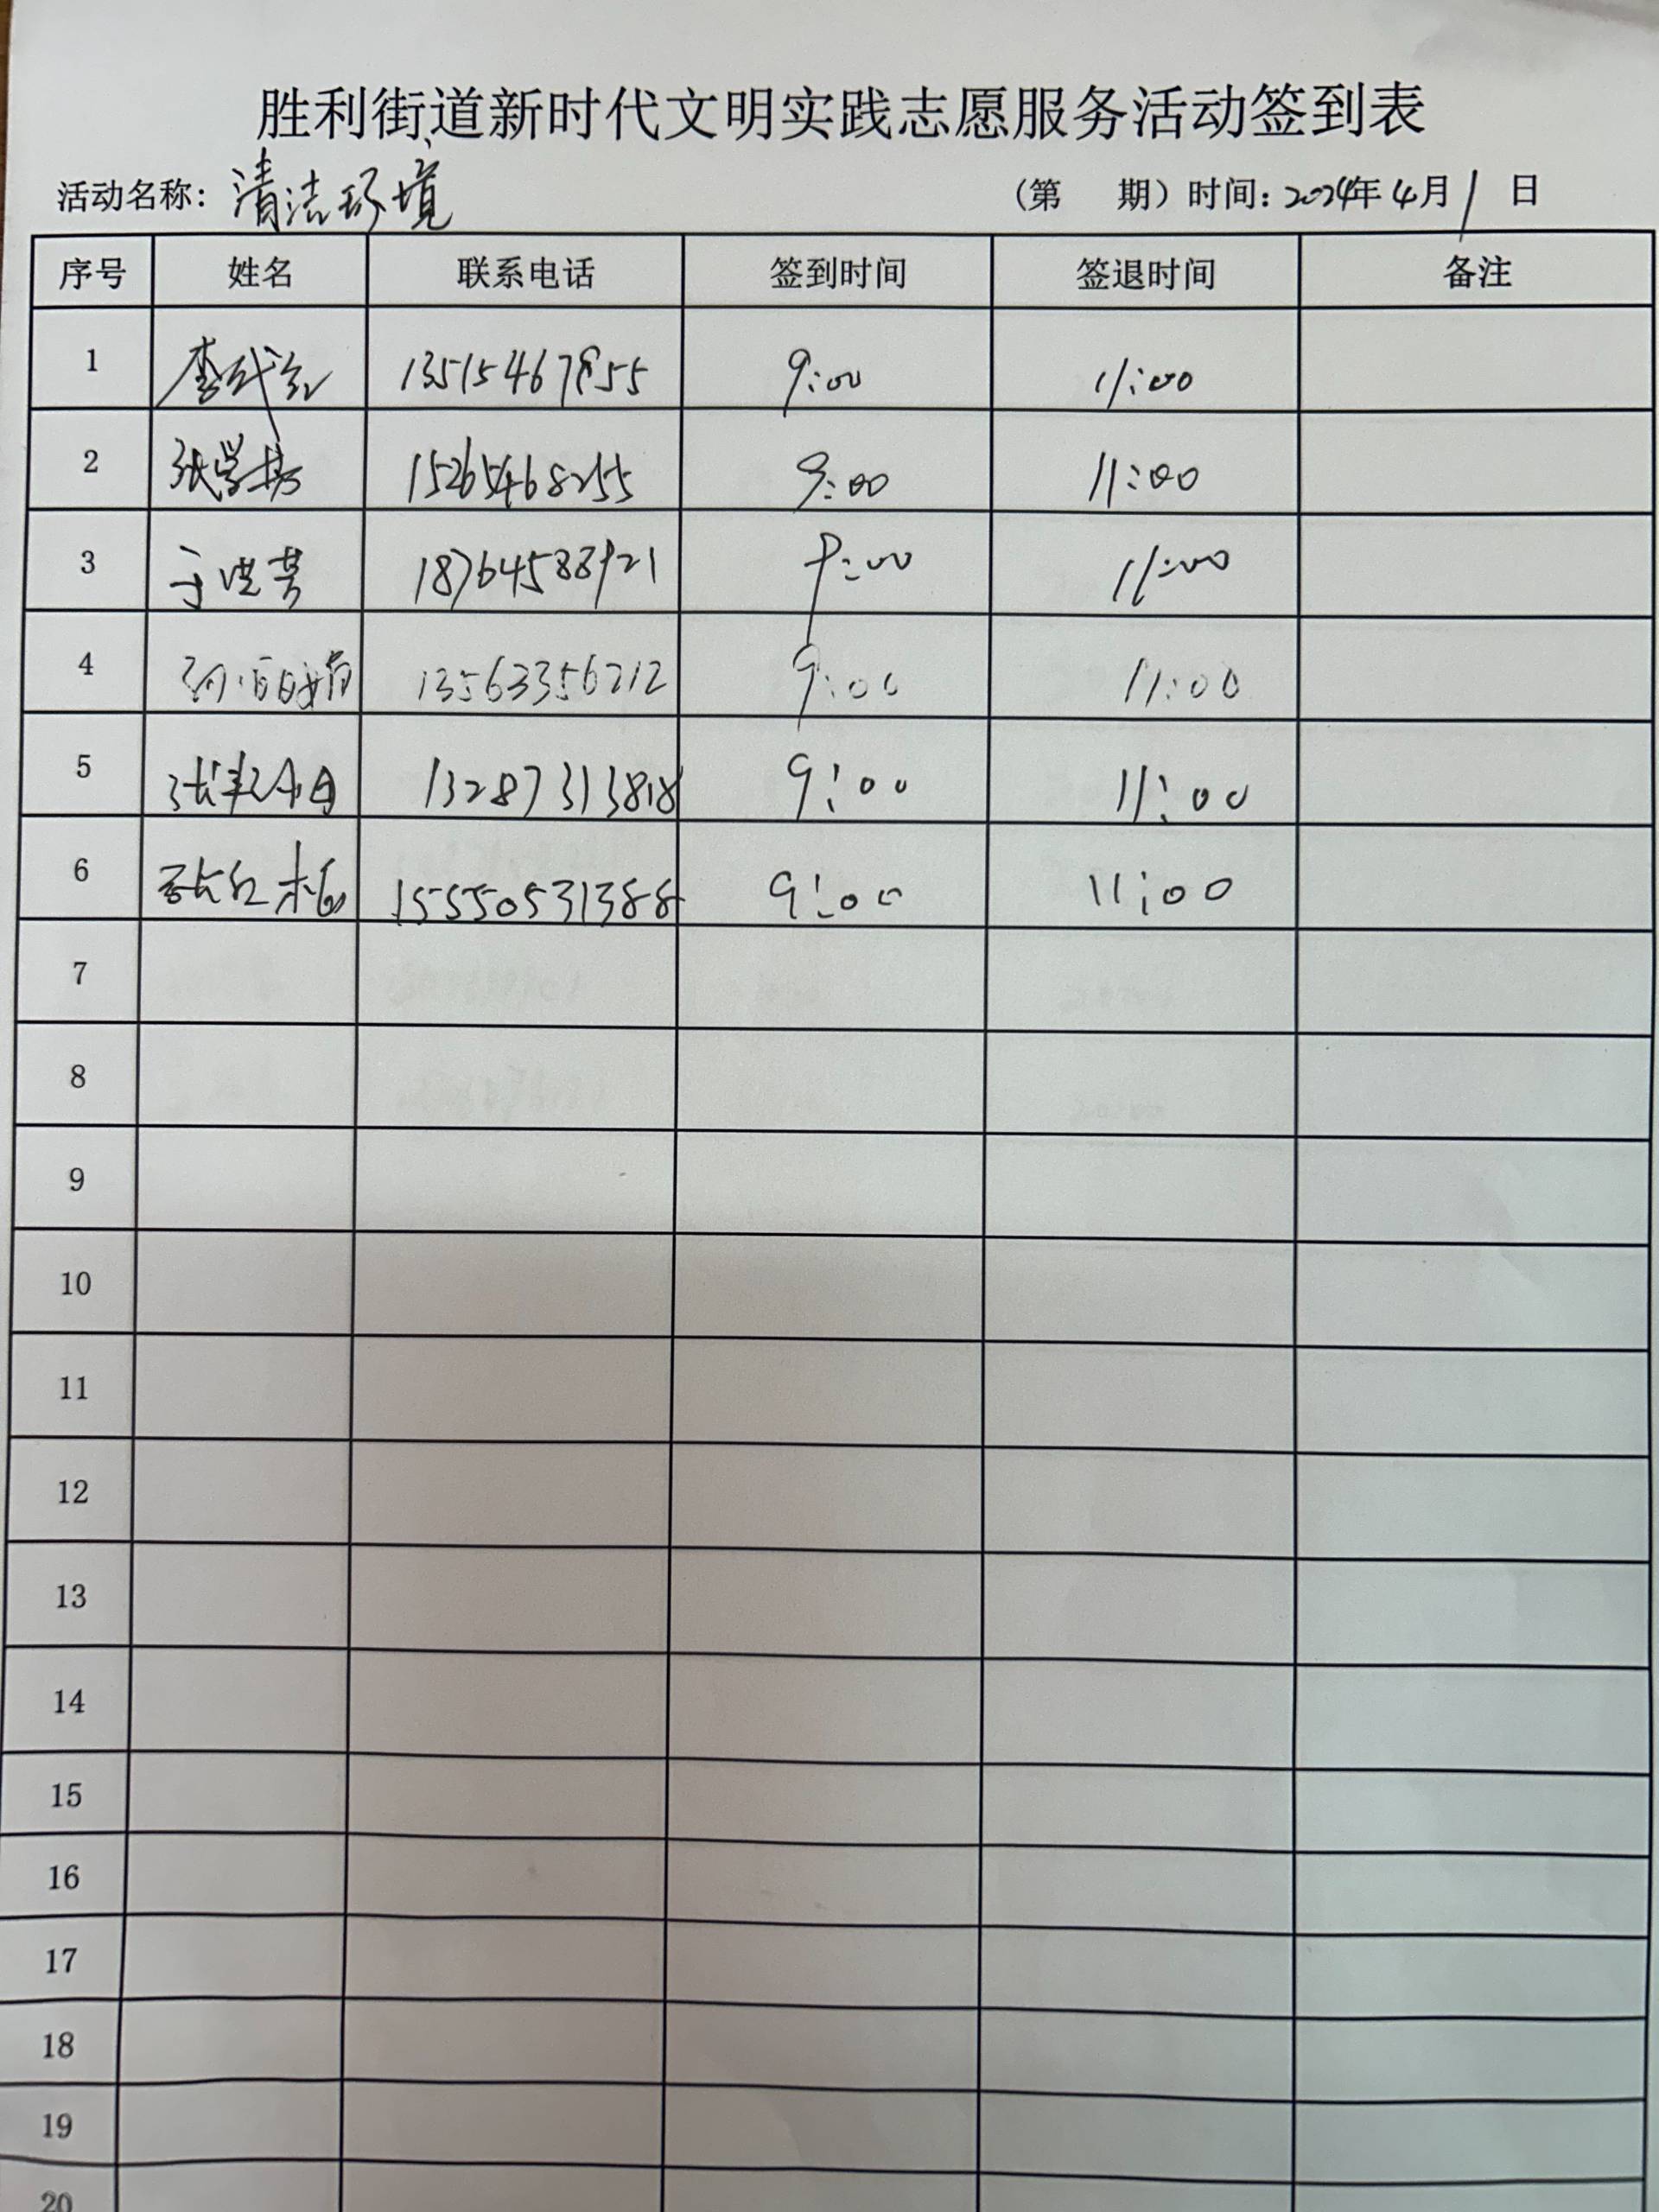 胜利街道新时代文明实践志愿服务活动签到表
活动名称: 清洁环境 (第 期) 时间: 2024年4月1日
序号 姓名 联系电话 签到时间 签退时间 备注
1 李代云 13515467855 9:00 11:00
2 张学梅 15265468255 9:00 11:00
3 于洪芳 18764588921 9:00 11:00
4 13563356212 9:00 11:00
5 13287313818 9:00 11:00
6 张红梅 15550531388 9:00 11:00
7
8
9
10
11
12
13
14
15
16
17
18
19
20